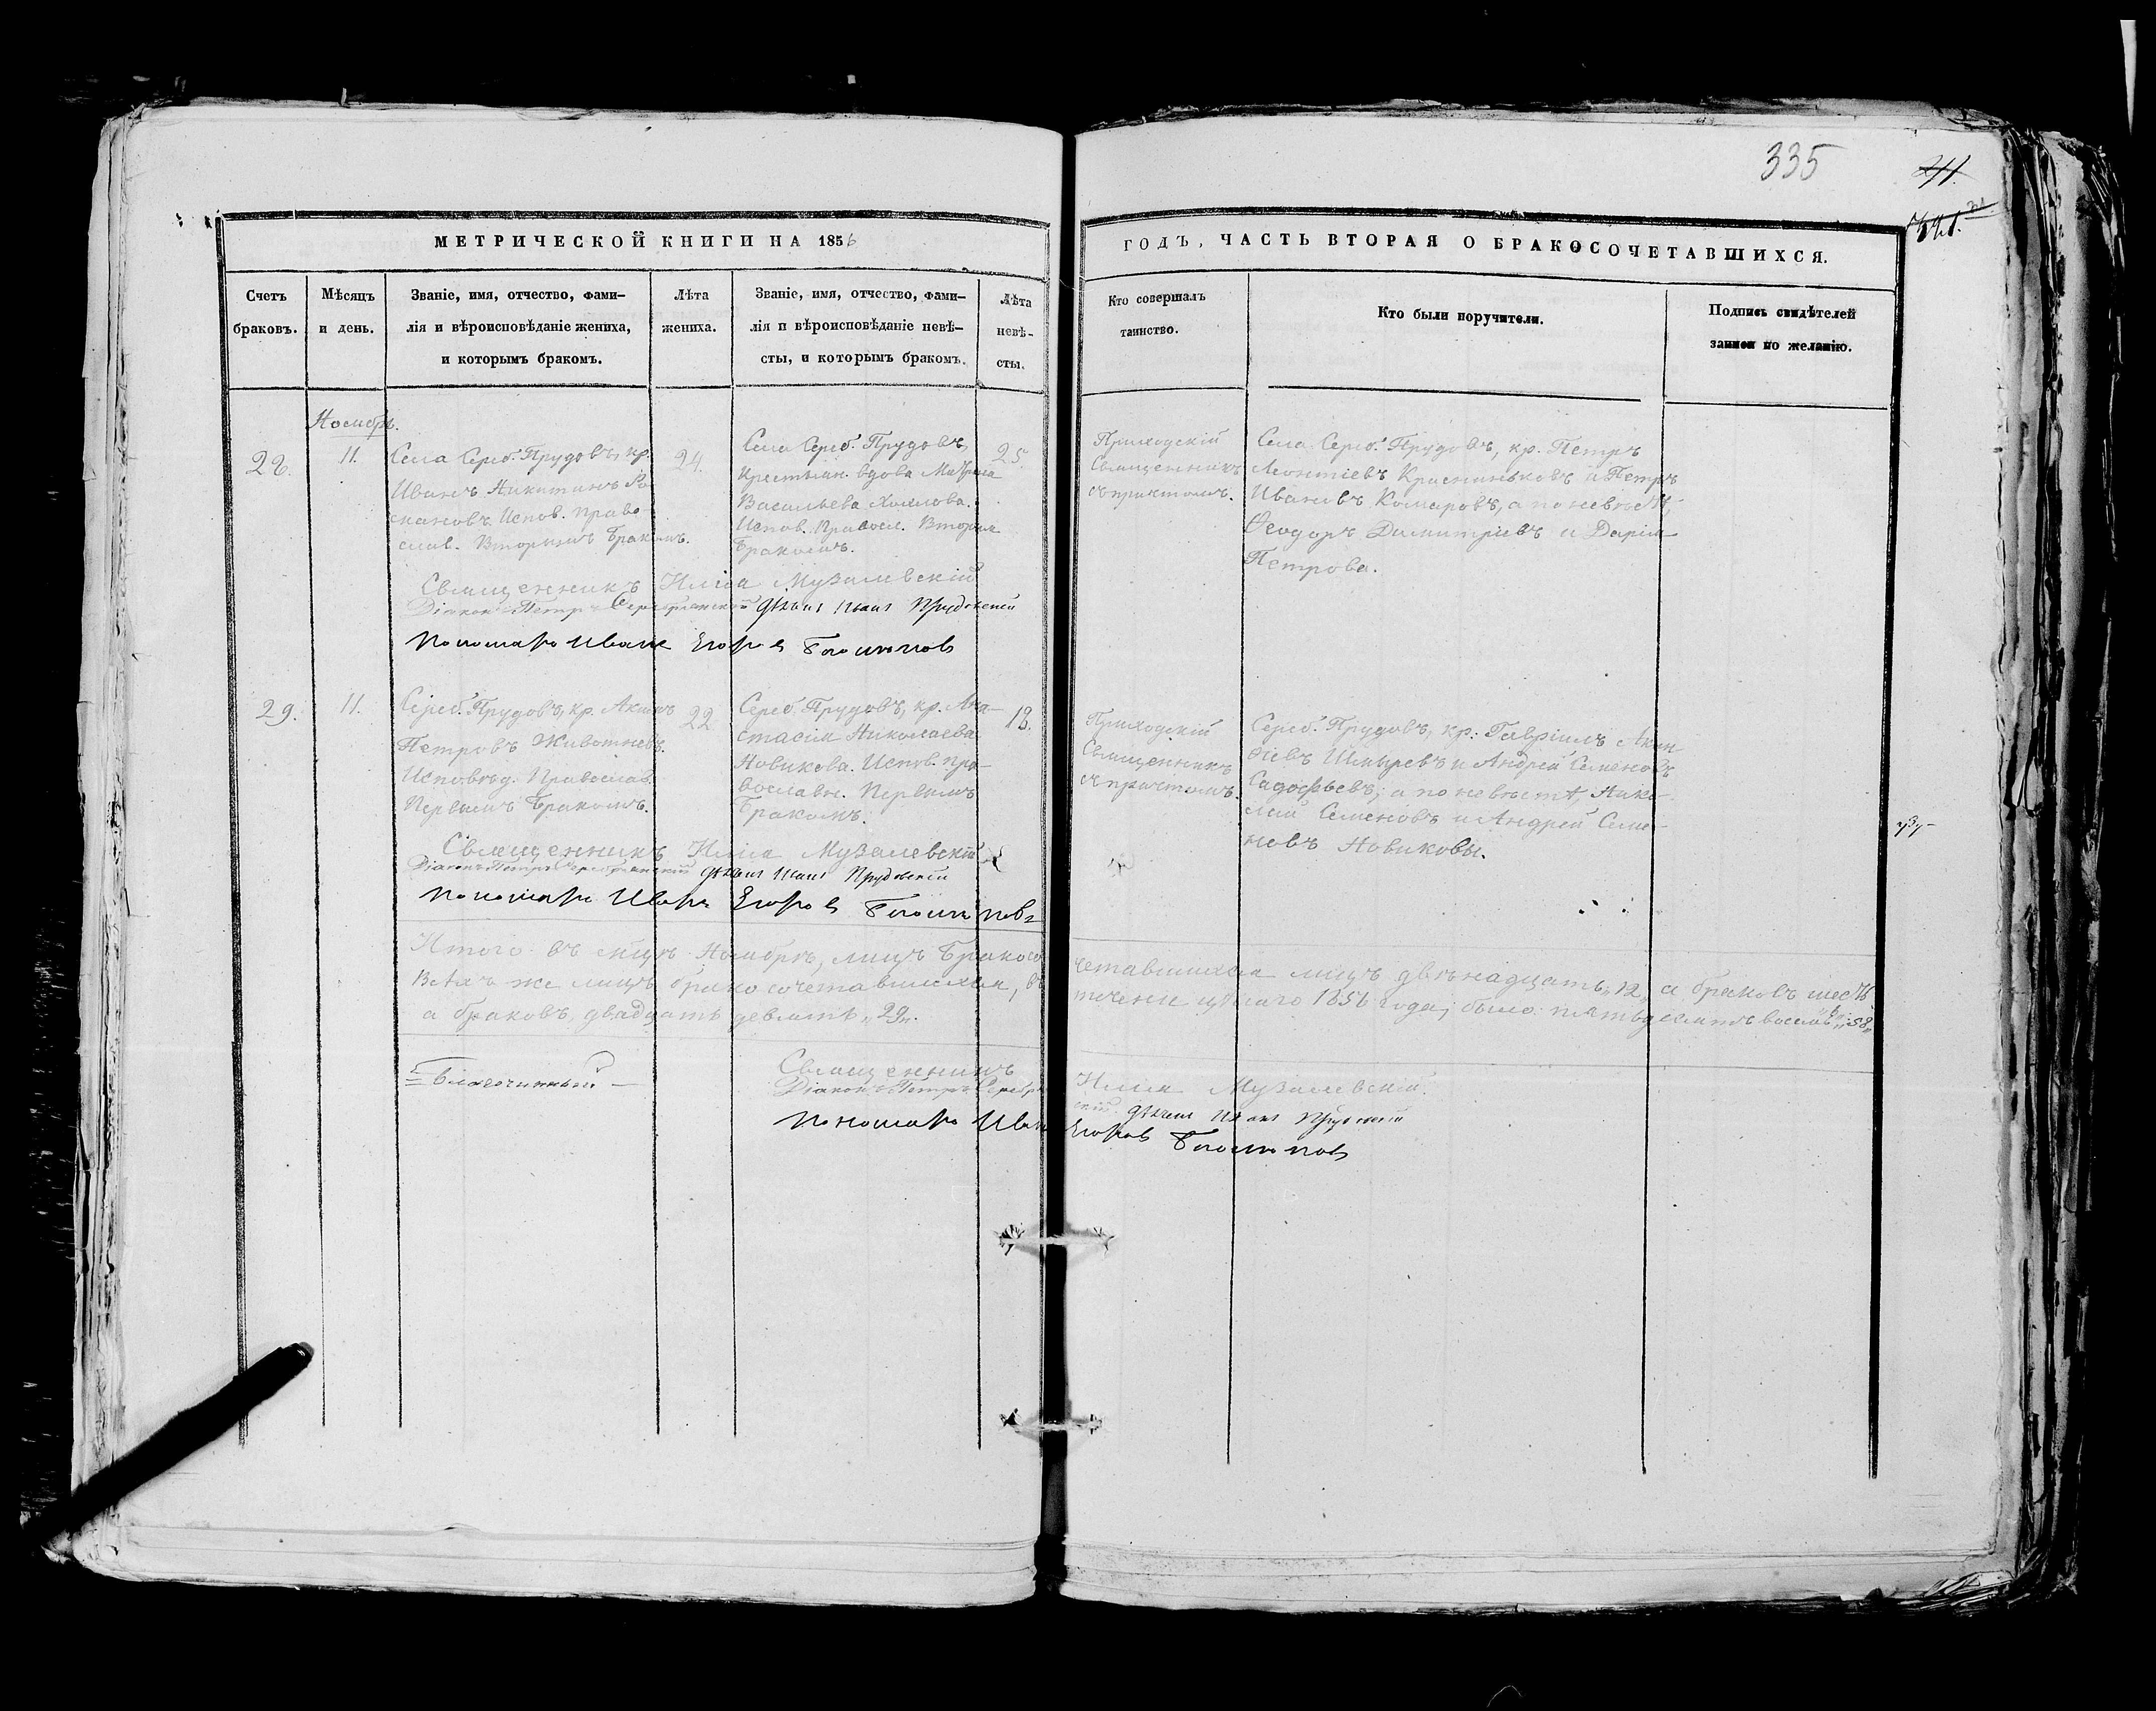 335
211.
МЕТРИЧЕСКОЙ КНИГИ НА 1856
ГОДЪ, ЧАСТЬ ВТОРАЯ О БРАКОСОЧЕТАВШИХСЯ.
Счетъ
браковъ.
Мѣсяцъ
и день.
Званіе, имя, отчество, фами–
лія и вѣроисповѣданіе жениха,
и которымъ бракомъ.
Лѣта
жениха.
Званіе, имя, отчество, фами–
лія и вѣроисповѣданіе невѣ–
сты, и которымъ бракомъ.
Лѣта
невѣ-
сты.
Кто совершалъ
таинство.
Кто были поручители.
Подпись свидѣтелей
записи по желанію.
Ноембрь.
28.
11.
Села Сереб. Прудовъ, кр.
Иванъ Никитинъ Ро
мановъ. Испов. право
слав. Вторымъ Бракомъ.
24.
Села Сереб. Прудовъ,
крестьян. вдова Матрона
Васильева
Испов. Правосл. Вторым
Бракомъ.
25.
Приходскій
Священникъ
съ причтомъ.
Села Сереб. Прудовъ, кр. Петръ
Леонтіевъ Красниковъ и Петръ
Ивановъ Комаровъ, а по невѣстѣ,
Ѳеодоръ Димитріевъ и Дарія
Петрова.
Священникъ Илія Музалевскій
Діаконъ Петръ Серебрянскій Дьячекъ Иванъ Прудскій
Пономарь Иванъ Егоров
29.
11.
Сереб. Прудовъ, кр. Акимъ
Петровъ Животневъ.
Исповѣд. Православ.
Первымъ Бракомъ.
22
Сереб. Прудовъ, кр. Ана–
стасія Николаева
Новикова. Испов. пра–
вославн. Первымъ
Бракомъ.
18.
Приходскій
Священникъ
съ причтомъ.
Сереб. Прудовъ, кр: Гавріилъ Акин
ѳіевъ Шмыревъ и Андрей Семеновъ
Садофьевъ; а по невѣстѣ, Нико–
лай Семеновъ и Андрей Семе–
новъ Новиковы.
Священникъ Илія Музалевскій
Діаконъ Петръ Серебрянскій Дьячекъ Иванъ Прудскій
Пономарь Иванъ Егоров
Итого въ Ноембрѣ, лицъ Бракосо
четавшихся лицъ двѣнадцать „12„ а браковъ шесть
Всѣхъ же лицъ бракосочетавшихся, въ
теченіи цѣлаго 1856 года; было пятьдесятъ восемь „58„
а браковъ двадцать девять „29„.
Благочинный –
Священникъ
Илія Музалевскій.
Діаконъ Петръ Серебрян
скій Дьячекъ Иванъ Прудскій
Пономарь Иванъ
Егоровъ